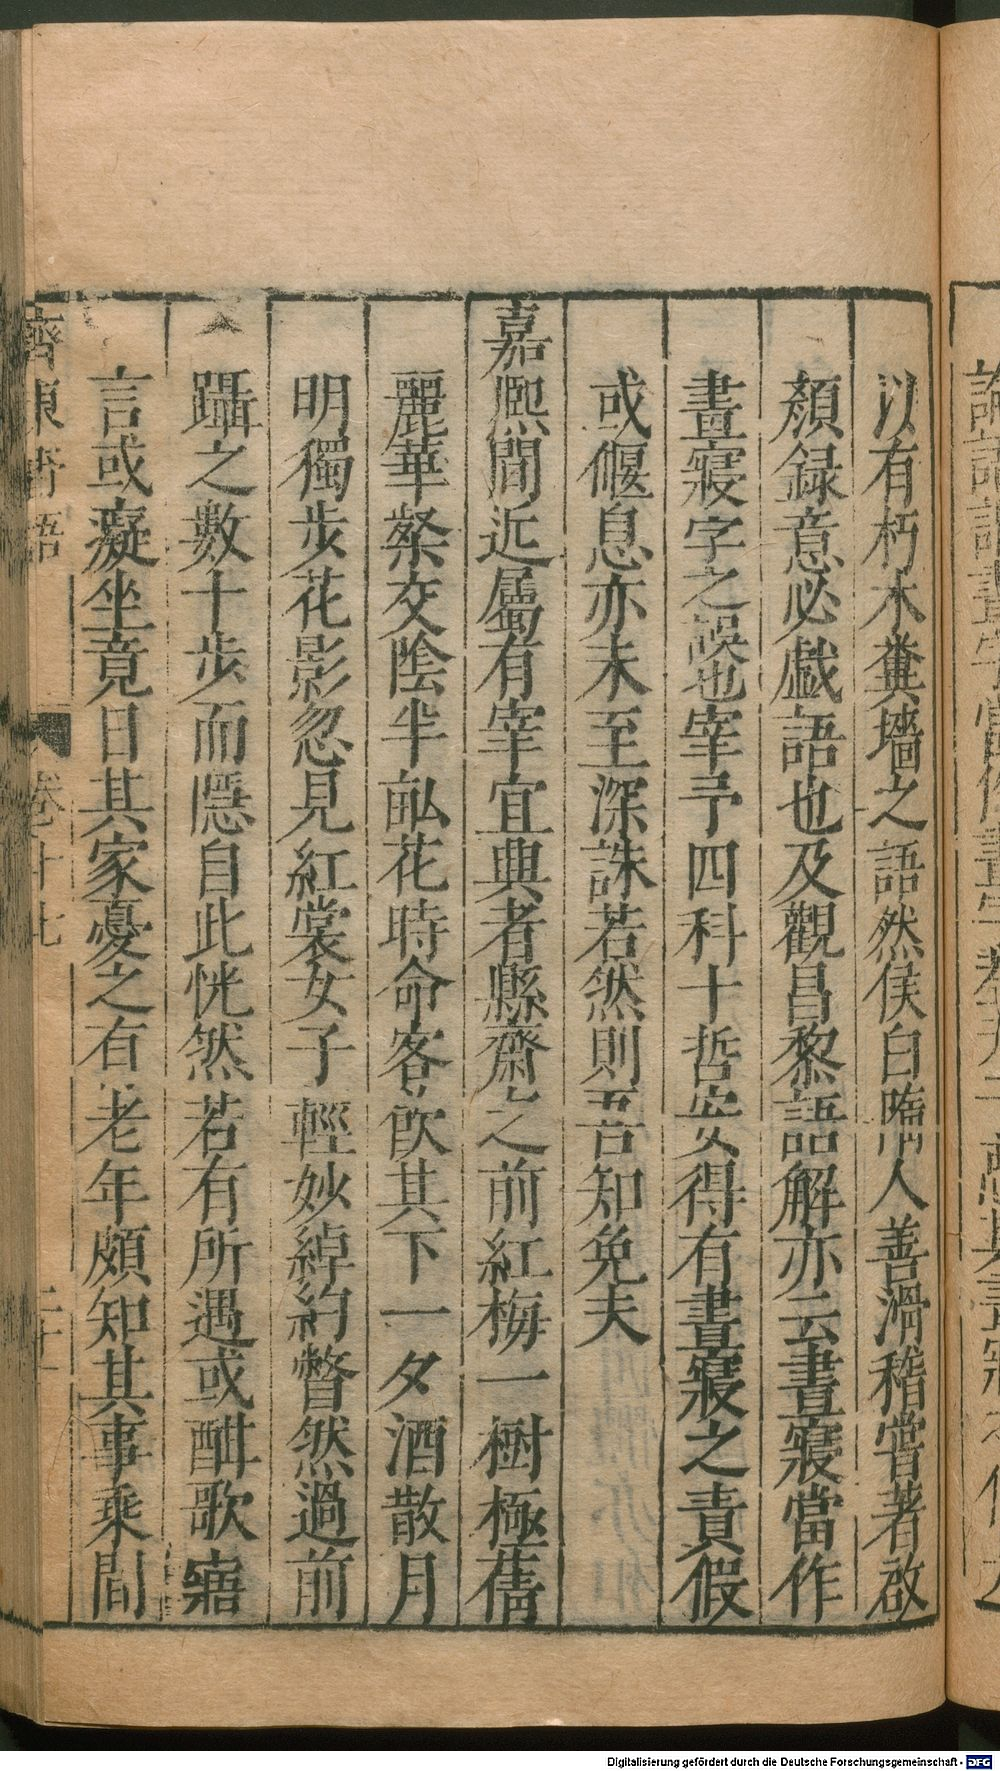 以有朽木糞墻之語然侯白隋人善滑稽嘗著啟
顏録意必戯語也及觀昌黎語解亦云晝寢當作
畫寢字之誤也宰予四科十哲安得有晝寢之責假
或偃息亦未至深誅若然則吾知免夫
嘉熈間近屬有宰宜興者縣齋之前紅梅一樹極蒨
麗華粲交陰半畝花時命客飲其下一夕酒散月
明獨步花影忽見紅裳女子輕妙綽約瞥然過前
躡之數十步而隱自此恍然若有所遇或酣歌寤
言或癡坐竟日其家憂之有老年頗知其事乘間
齊東野語
卷十七
Digitalisierung gefördert durch die Deutsche Forschungsgemeinschaft - DFG